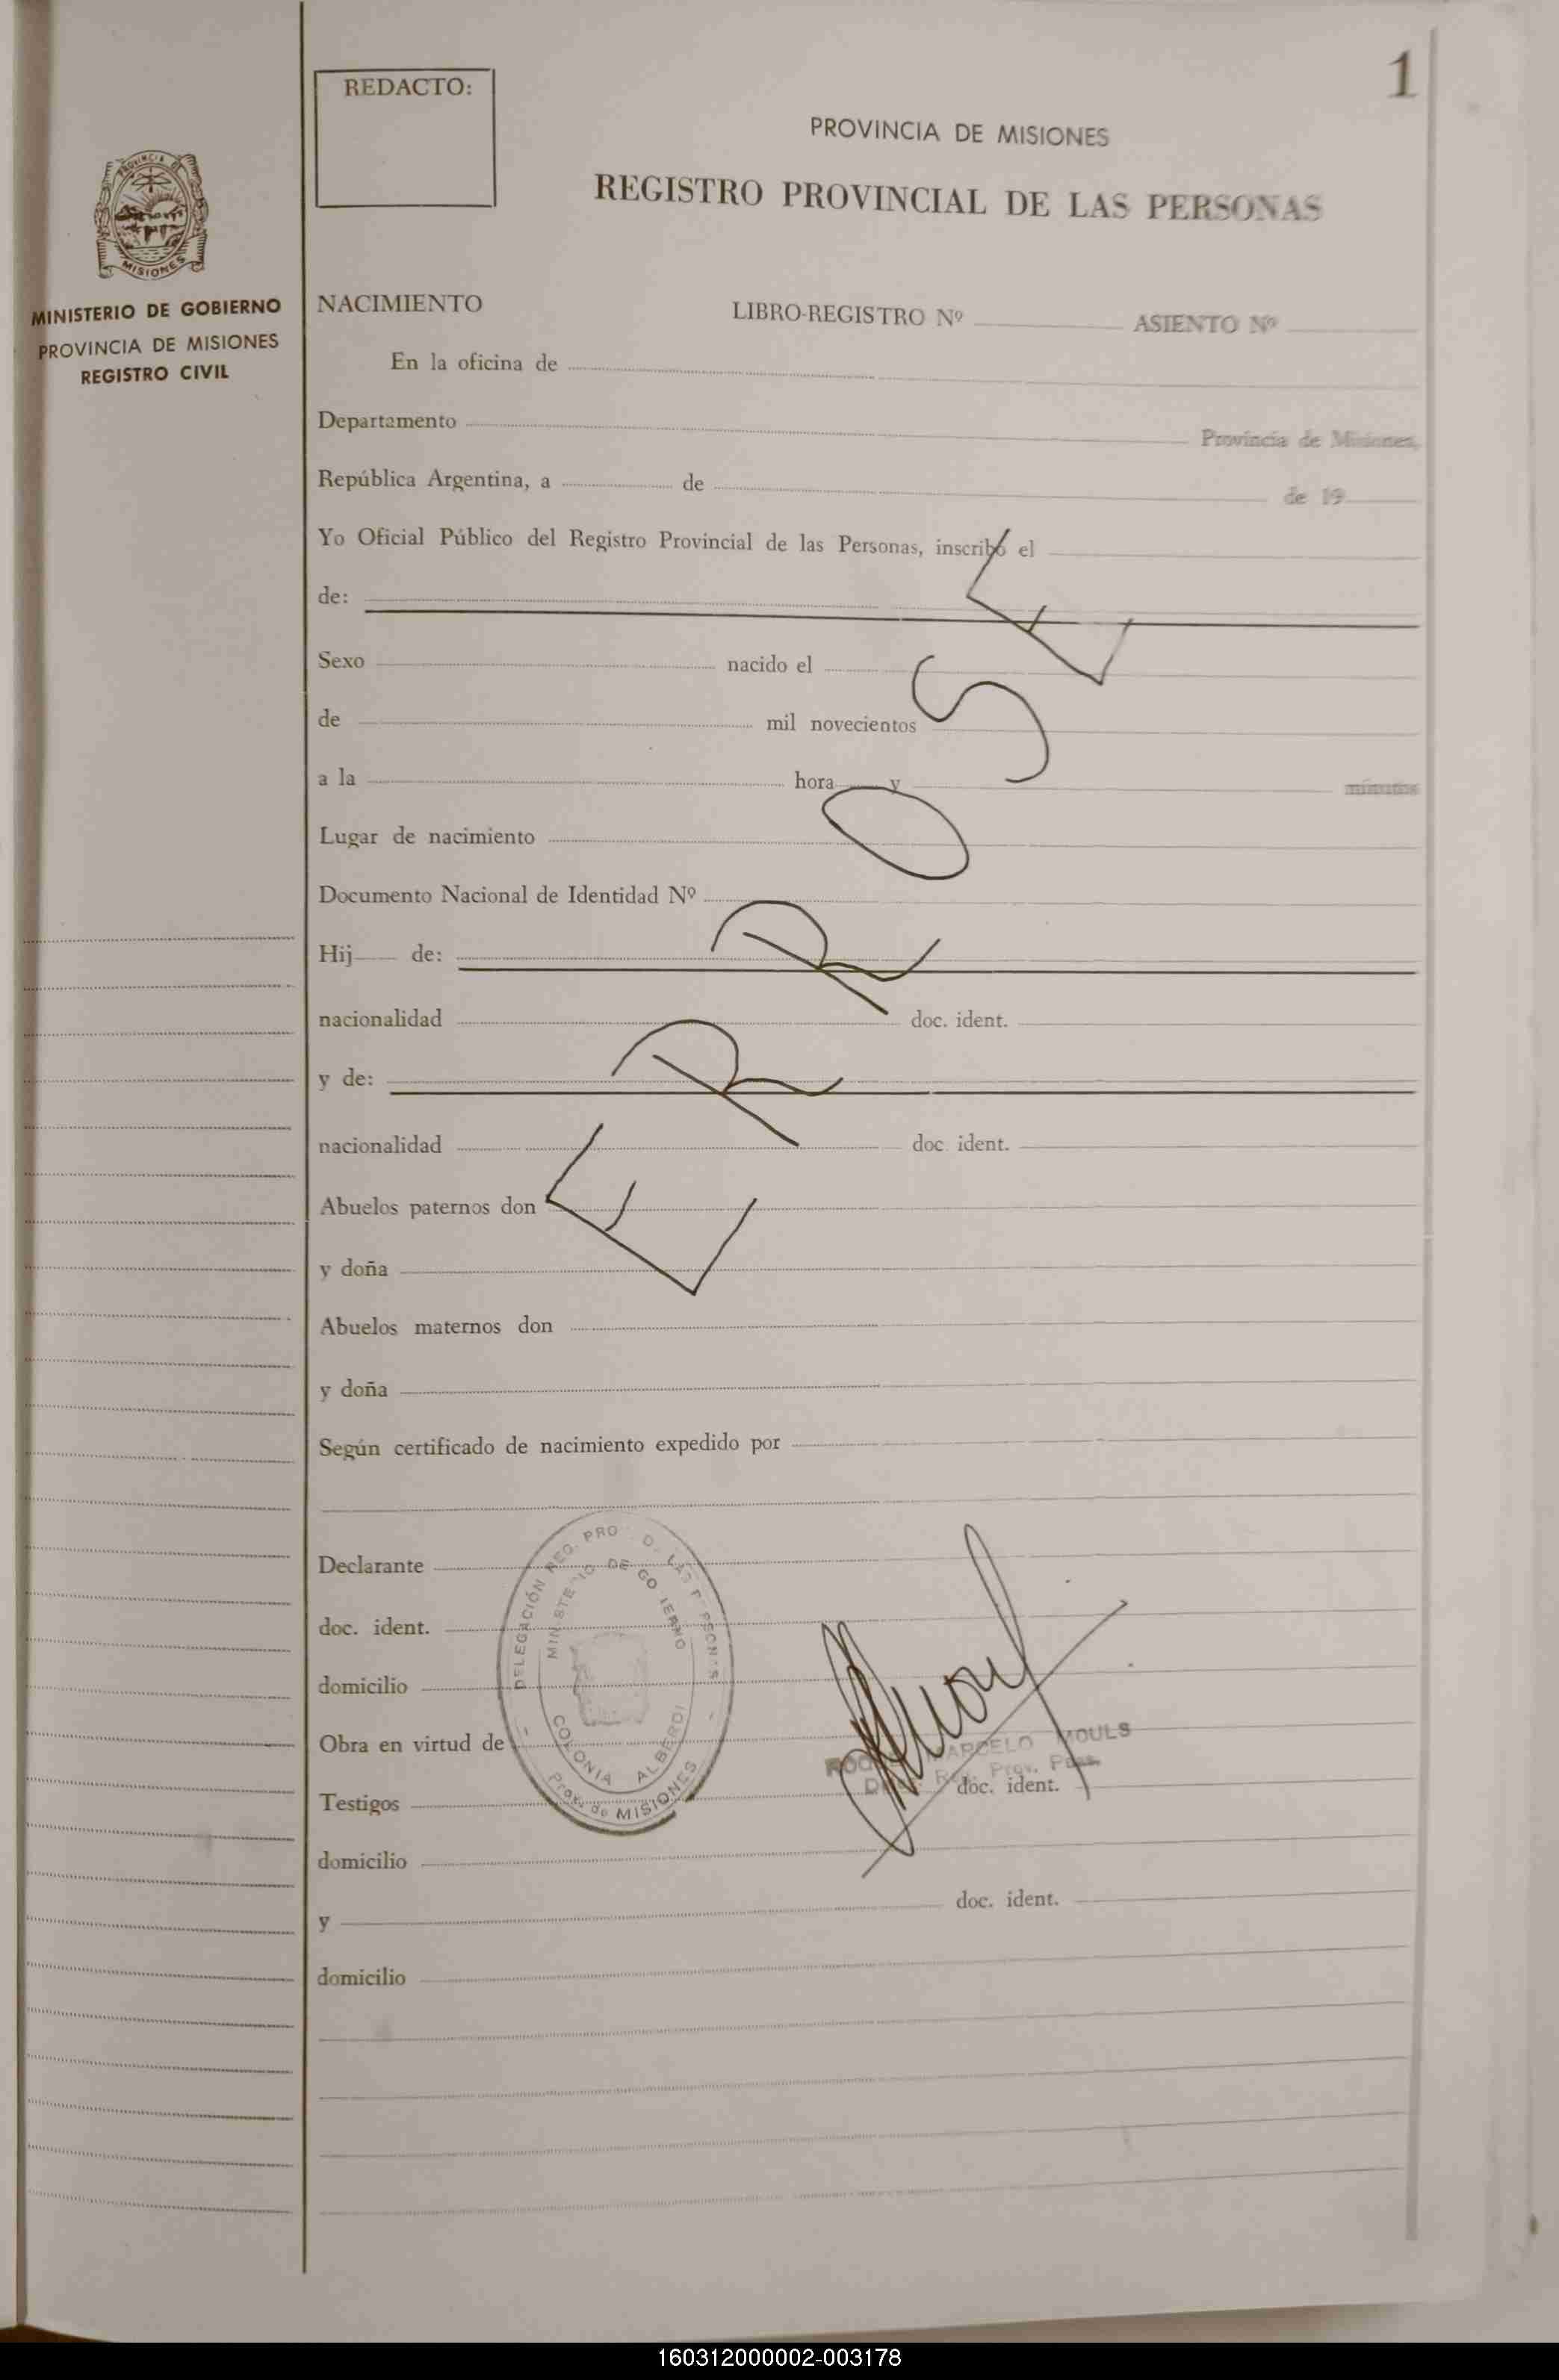 1
REDACTO:
PROVINCIA DE MISIONES
REGISTRO PROVINCIAL DE LAS PERSONAS
PROVINCIA DE
MISIONES
MINISTERIO DE GOBIERNO
PROVINCIA DE MISIONES
REGISTRO CIVIL
NACIMIENTO LIBRO-REGISTRO Nº ASIENTO Nº
En la oficina de
Departamento Provincia de Misiones,
República Argentina, a de de 19
Yo Oficial Público del Registro Provincial de las Personas, inscribo el
de:
Sexo nacido el
de mil novecientos
a la hora y minutos
Lugar de nacimiento
Documento Nacional de Identidad Nº
Hij de:
nacionalidad doc. ident.
y de:
nacionalidad doc. ident.
Abuelos paternos don
y doña
Abuelos maternos don
y doña
Según certificado de nacimiento expedido por
ERROSE
Declarante
doc. ident.
domicilio
Obra en virtud de
Testigos doc. ident.
domicilio
y doc. ident.
domicilio
DELEGACIÓN REG. PRO D. LAS PERSONAS
MINISTERIO DE GOBIERNO
COLONIA ALBERDI
Prov. de MISIONES
MARCELO MOULS
Prov. Pers.
160312000002-003178